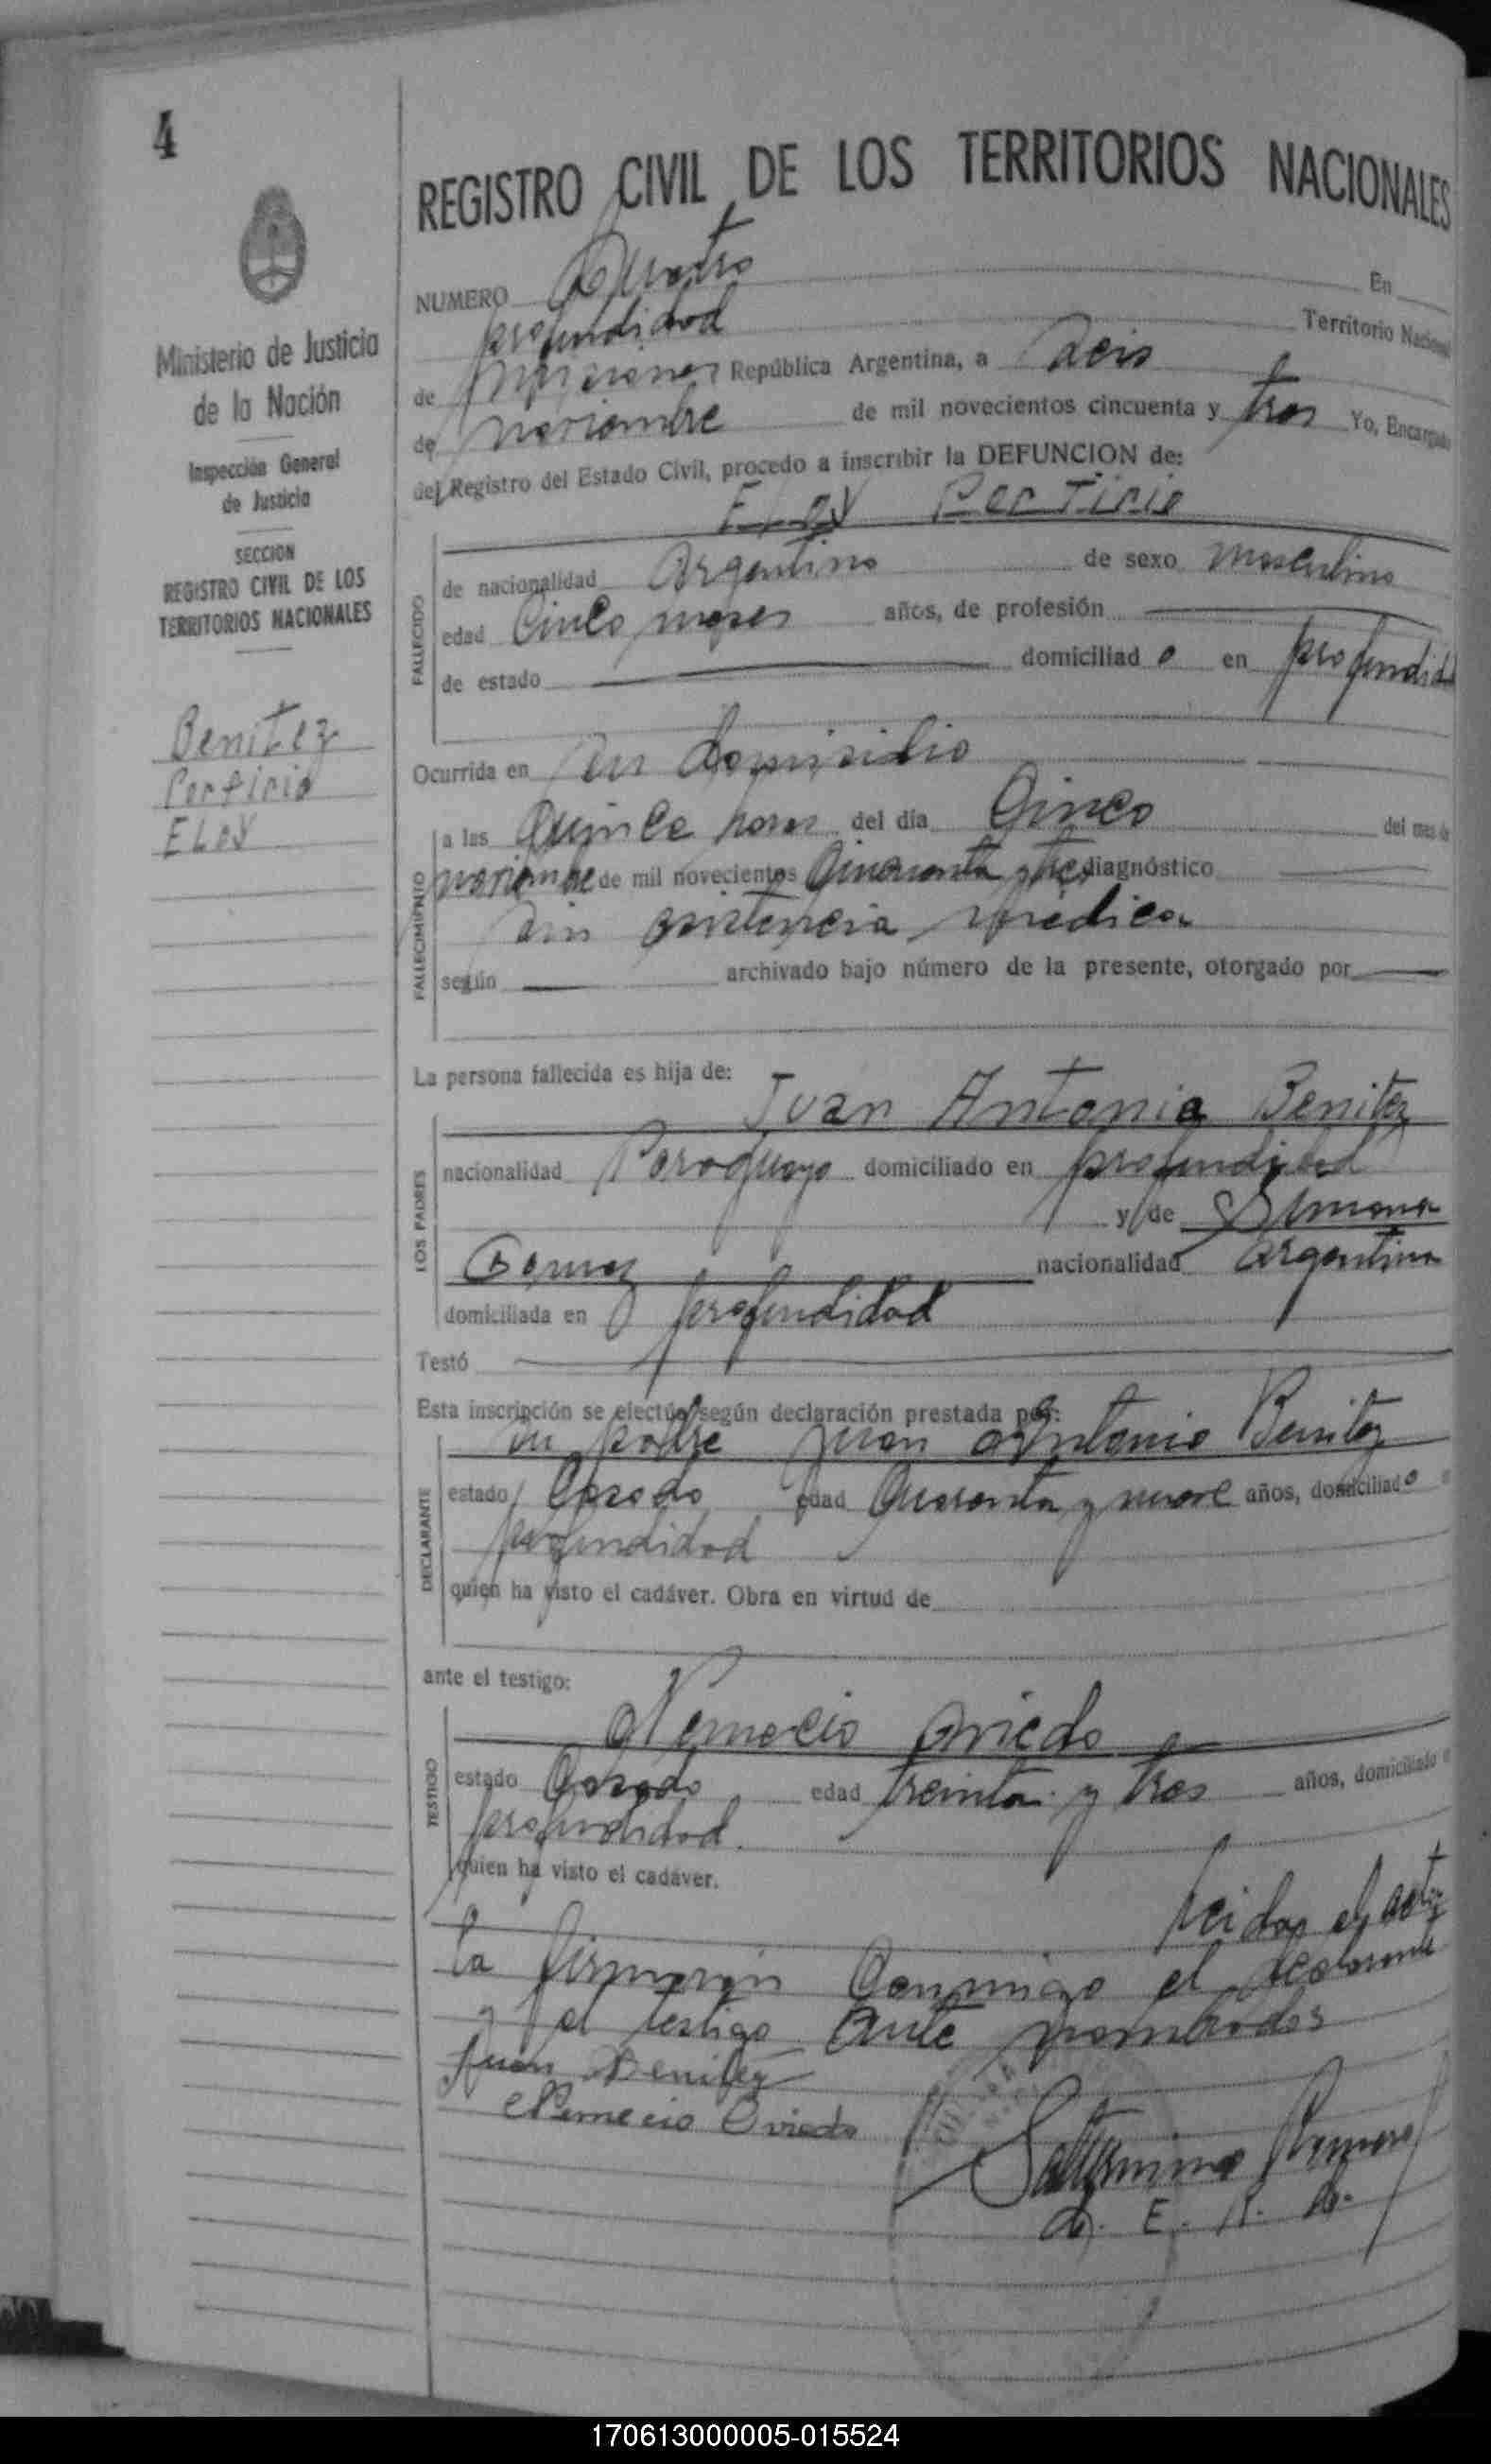 4
REGISTRO CIVIL DE LOS TERRITORIOS NACIONALES
Ministerio de Justicia
de la Nación
Inspección General
de Justicia
SECCION
REGISTRO CIVIL DE LOS
TERRITORIOS NACIONALES
Benitez
Porfirio
ELOY
NUMERO Cuatro En
profundidad Territorio Nacional
de Misiones República Argentina, a Seis
de noviembre de mil novecientos cincuenta y tres Yo, Encargado
del Registro del Estado Civil, procedo a inscribir la DEFUNCION de:
ELOY Porfirio
FALLECIDO
de nacionalidad Argentino de sexo masculino
edad Cinco meses años, de profesión
de estado domiciliado en profundidad
Ocurrida en su domisidio
FALLECIMIENTO
a las Quince horas del día Cinco del mes de
noviembre de mil novecientos Cincuenta y tres diagnóstico
sin asistencia médica
según archivado bajo número de la presente, otorgado por
La persona fallecida es hija de:
Juan Antonio Benitez
LOS PADRES
nacionalidad Paraguayo domiciliado en profundidad
y de Simona
Gomez nacionalidad argentina
domiciliada en profundidad
Testó
Esta inscripción se efectúa según declaración prestada por:
su padre Juan Antonio Benitez
DECLARANTE
estado Casado edad Cuarenta y nueve años, domiciliado
profundidad
quien ha visto el cadáver. Obra en virtud de
ante el testigo:
Nemecio Oviedo
TESTIGO
estado Casado edad treinta y tres años, domiciliado
profundidad.
quien ha visto el cadáver.
leida el acta
la firmarán Conmigo el declarante
y el testigo ante nombrados
Juan Benitez
Nemecio Oviedo
Saturnino Romero
E. R.
170613000005-015524